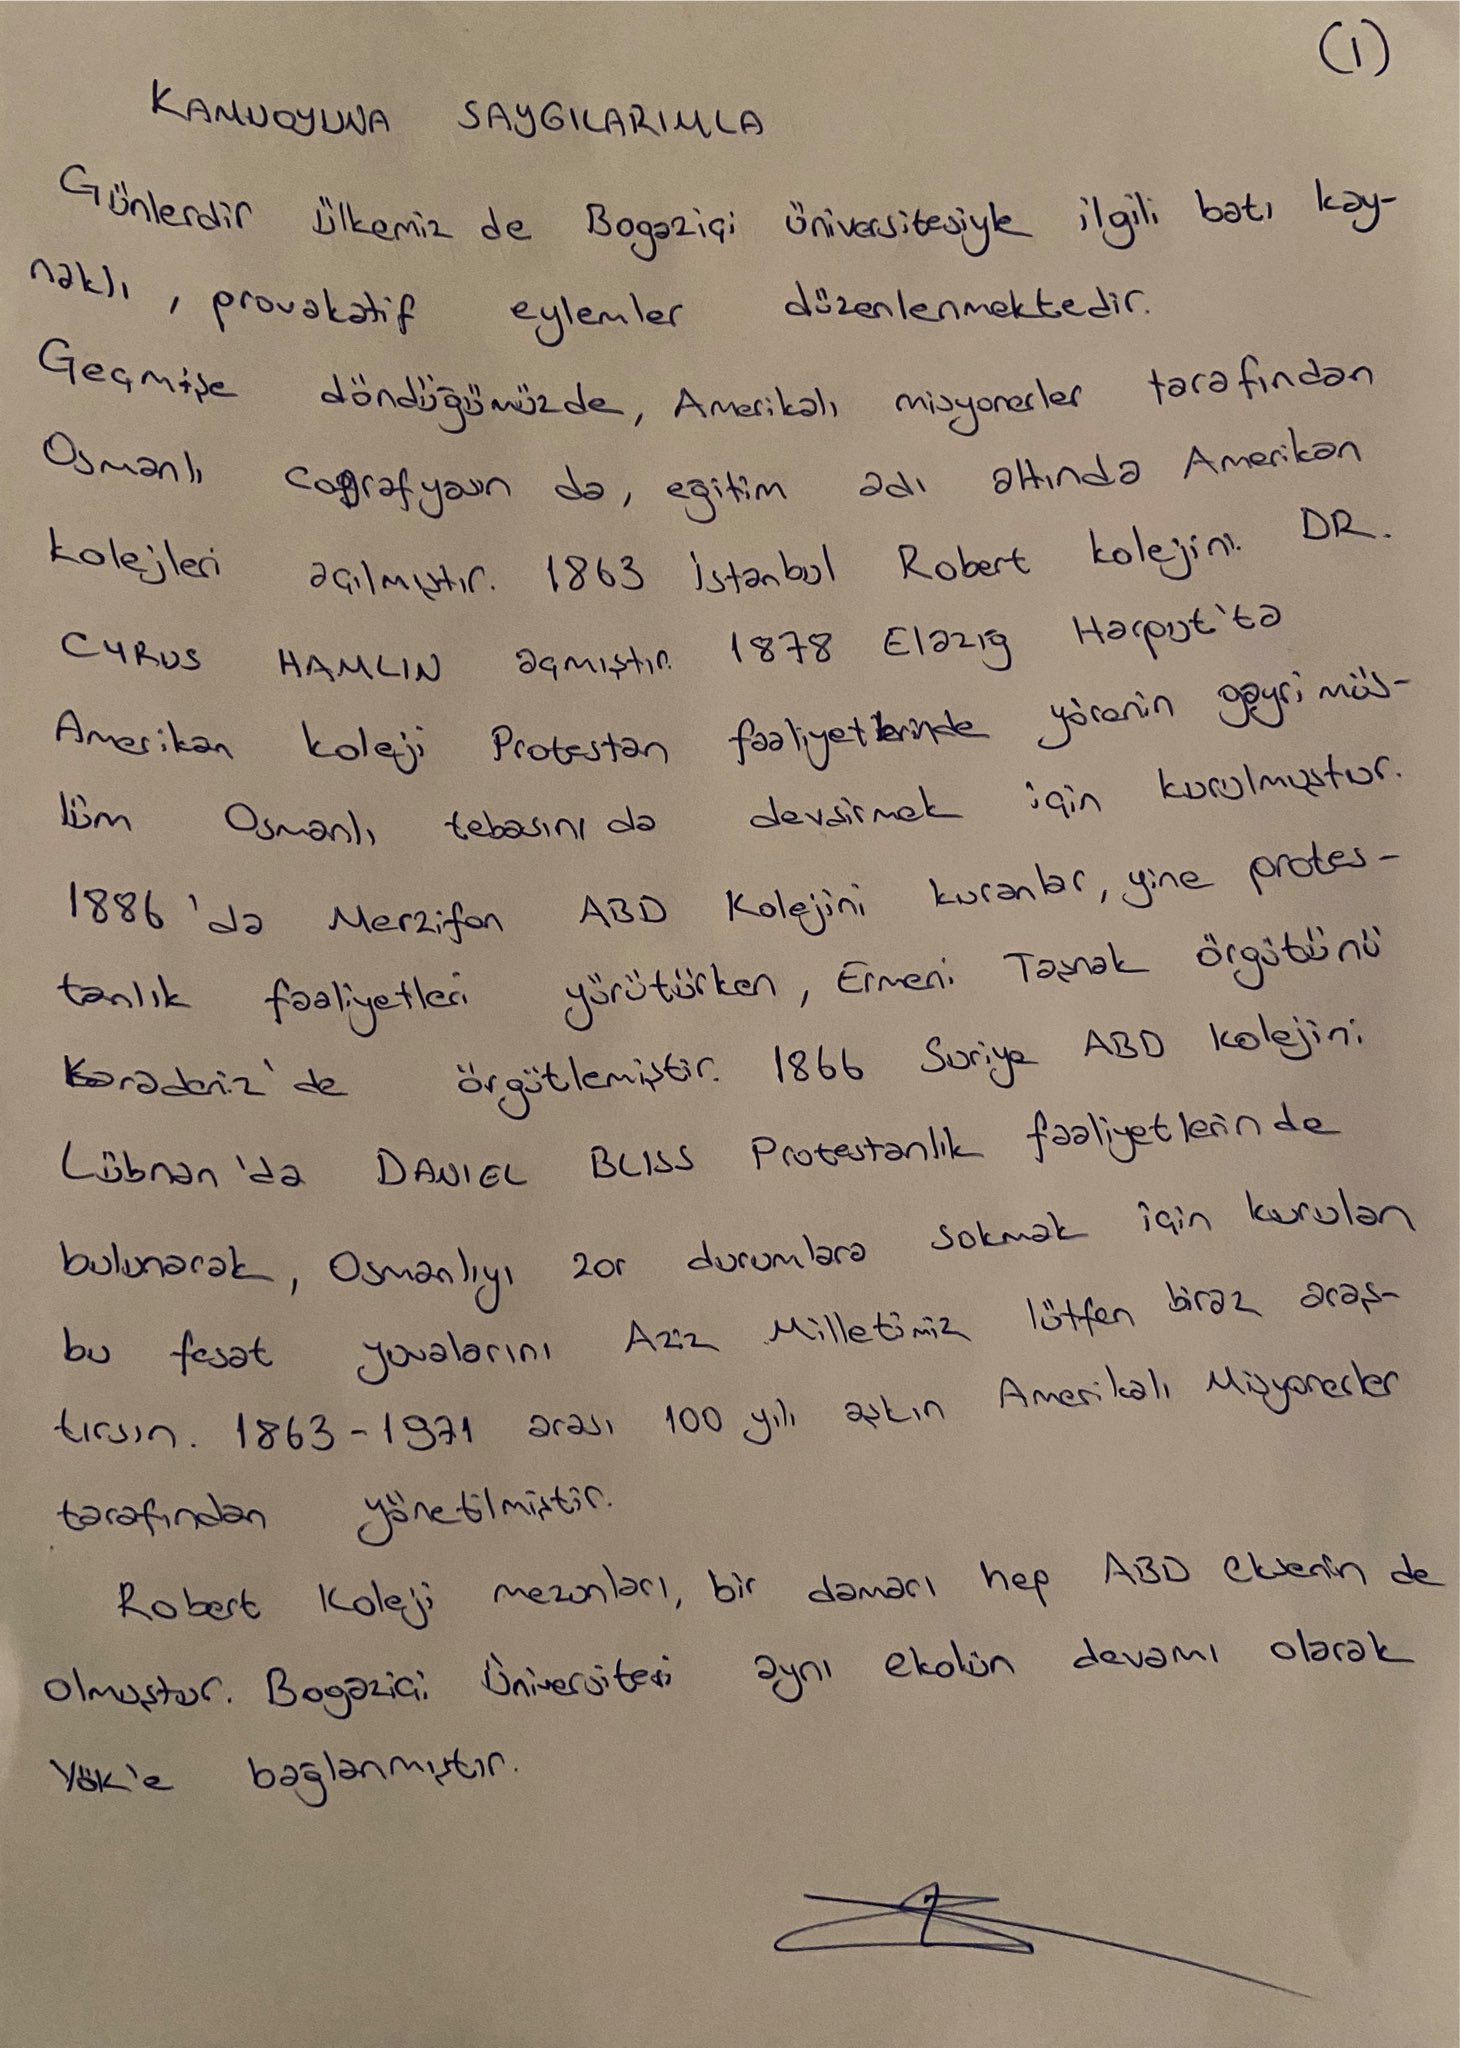 (1)
KAMUOYUNA SAYGILARIMLA
Günlerdir ülkemiz de Bogaziçi üniversitesiyle ilgili batı kay-
naklı, provakatif eylemler düzenlenmektedir.
Geçmişe döndüğümüzde, Amerikalı misyonerler tarafından
Osmanlı coğrafyasın da, eğitim adı altında Amerikan
kolejleri açılmıştır. 1863 İstanbul Robert kolejini DR.
CYRUS HAMLIN açmıştır. 1878 Elazığ Harput'ta
Amerikan koleji Protestan faaliyetlerinde yörenin gayri müs-
lüm Osmanlı tebasını da devşirmek için kurulmuştur.
1886'da Merzifon ABD Kolejini kuranlar, yine protes-
tanlık faaliyetleri yürütürken, Ermeni Taşnak örgütünü
Karadeniz'de örgütlemiştir. 1866 Suriye ABD kolejini
Lübnan'da DANIEL BLISS Protestanlık faaliyetlerin de
bulunarak, Osmanlıyı zor durumlara sokmak için kurulan
bu fesat yuvalarını Aziz Milletimiz lütfen biraz araş-
tırsın. 1863-1971 arası 100 yılı aşkın Amerikalı Misyonerler
tarafından yönetilmiştir.
Robert Koleji mezunları, bir damarı hep ABD eksenin de
olmuştur. Bogaziçi Üniversitesi aynı ekolün devamı olarak
YÖK'e bağlanmıştır.